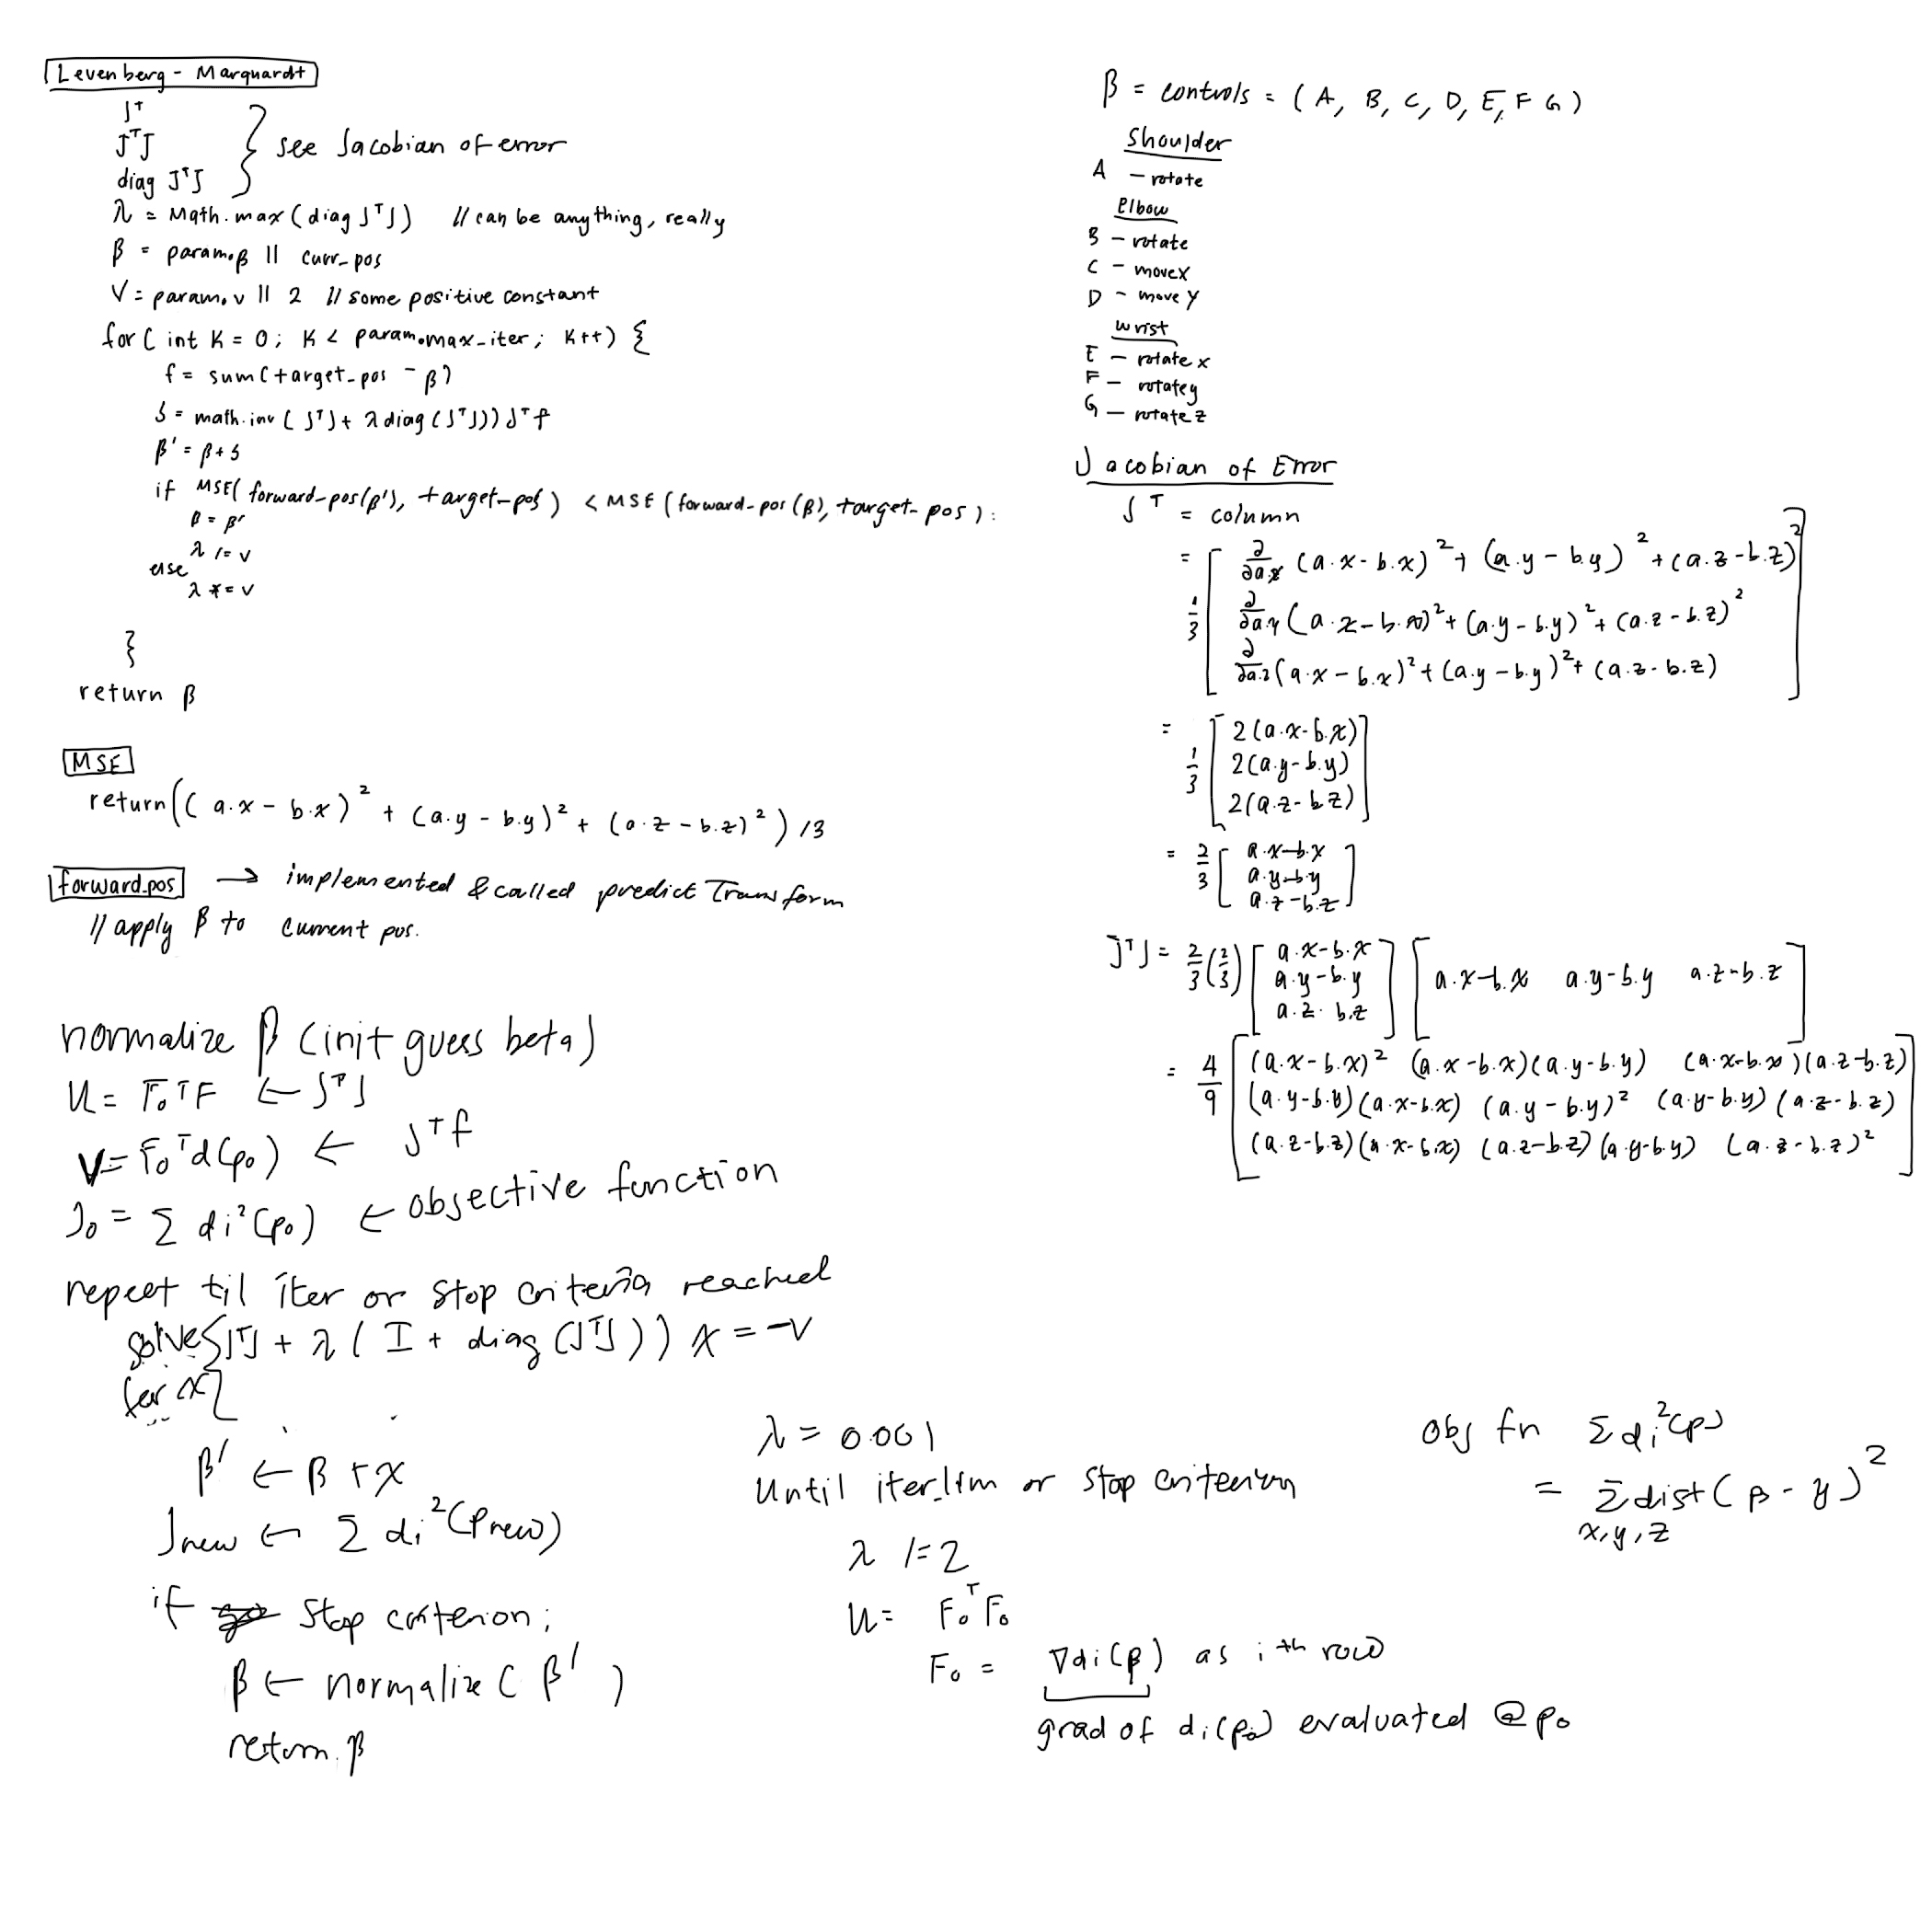 Levenberg - Marquardt
J^T
J^T J
diag J^T J
} see Jacobian of error
λ = Math.max (diag J^T J) // can be anything, really
β = param.β || curr_pos
V = param.v || 2 // some positive constant
for ( int K = 0; K < param.max_iter; K++) {
f = sum(target_pos - β)
δ = math.inv ( J^T J + λ diag (J^T J)) J^T f
β' = β + δ
if MSE( forward_pos(β'), target_pos) < MSE (forward_pos (β), target_pos):
β = β'
λ /= v
else
λ *= v
}
return β
MSE
return ((a.x - b.x)^2 + (a.y - b.y)^2 + (a.z - b.z)^2) /3
forward_pos → implemented & called predict Transform
// apply β to current pos.
normalize β (init guess beta)
U = F₀^T F ← J^T J
V = F₀^T d(p₀) ← J^T f
J₀ = Σ di²(p₀) ← objective function
repeat til iter or stop criteria reached
solve{J^T J + λ ( I + diag (J^T J)) x = -v
for x}
β' ← β + x
Jnew ← Σ di²(Pnew)
if stop criterion;
β ← normalize ( β' )
return β
β = controls = (A, B, C, D, E, F G)
Shoulder
A - rotate
elbow
B - rotate
C - movex
D - move y
wrist
E - rotate x
F - rotatey
G - rotate z
Jacobian of Error
J^T = column
= 1/3 [ ∂/∂a.x (a.x - b.x)^2 + (a.y - b.y)^2 + (a.z - b.z)^2
∂/∂a.y (a.x - b.x)^2 + (a.y - b.y)^2 + (a.z - b.z)^2
∂/∂a.z (a.x - b.x)^2 + (a.y - b.y)^2 + (a.z - b.z) ]
= 1/3 [ 2(a.x - b.x)
2(a.y - b.y)
2(a.z - b.z) ]
= 2/3 [ a.x - b.x
a.y - b.y
a.z - b.z ]
J^T J = 2/3 (2/3) [ a.x - b.x
a.y - b.y
a.z - b.z ] [ a.x - b.x a.y - b.y a.z - b.z ]
= 4/9 [ (a.x - b.x)^2 (a.x - b.x)(a.y - b.y) (a.x - b.x)(a.z - b.z)
(a.y - b.y)(a.x - b.x) (a.y - b.y)^2 (a.y - b.y)(a.z - b.z)
(a.z - b.z)(a.x - b.x) (a.z - b.z)(a.y - b.y) (a.z - b.z)^2 ]
λ = 0.001
Until iter_lim or stop criterion
λ /= 2
U = F₀^T F₀
F₀ = ∇di(β) as i th row
grad of di(p₀) evaluated @ p₀
obj fn Σ di²(p)
= Σ dist (β - y)^2
x,y,z